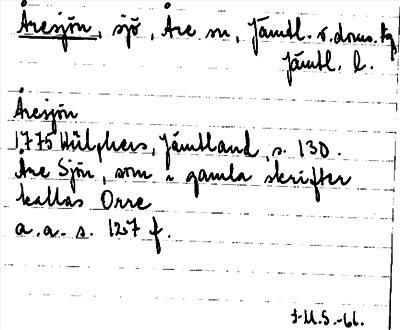 Åresjön, sjö, Åre sn, Jämtl. v. doms. tg
Jämtl. l.
Åresjön
1775 Hülphers, Jämtland, s. 130.
Åre Sjön, som i gamla skrifter
kallas Orre
a.a. s. 127 f.
J.M.S.-66.